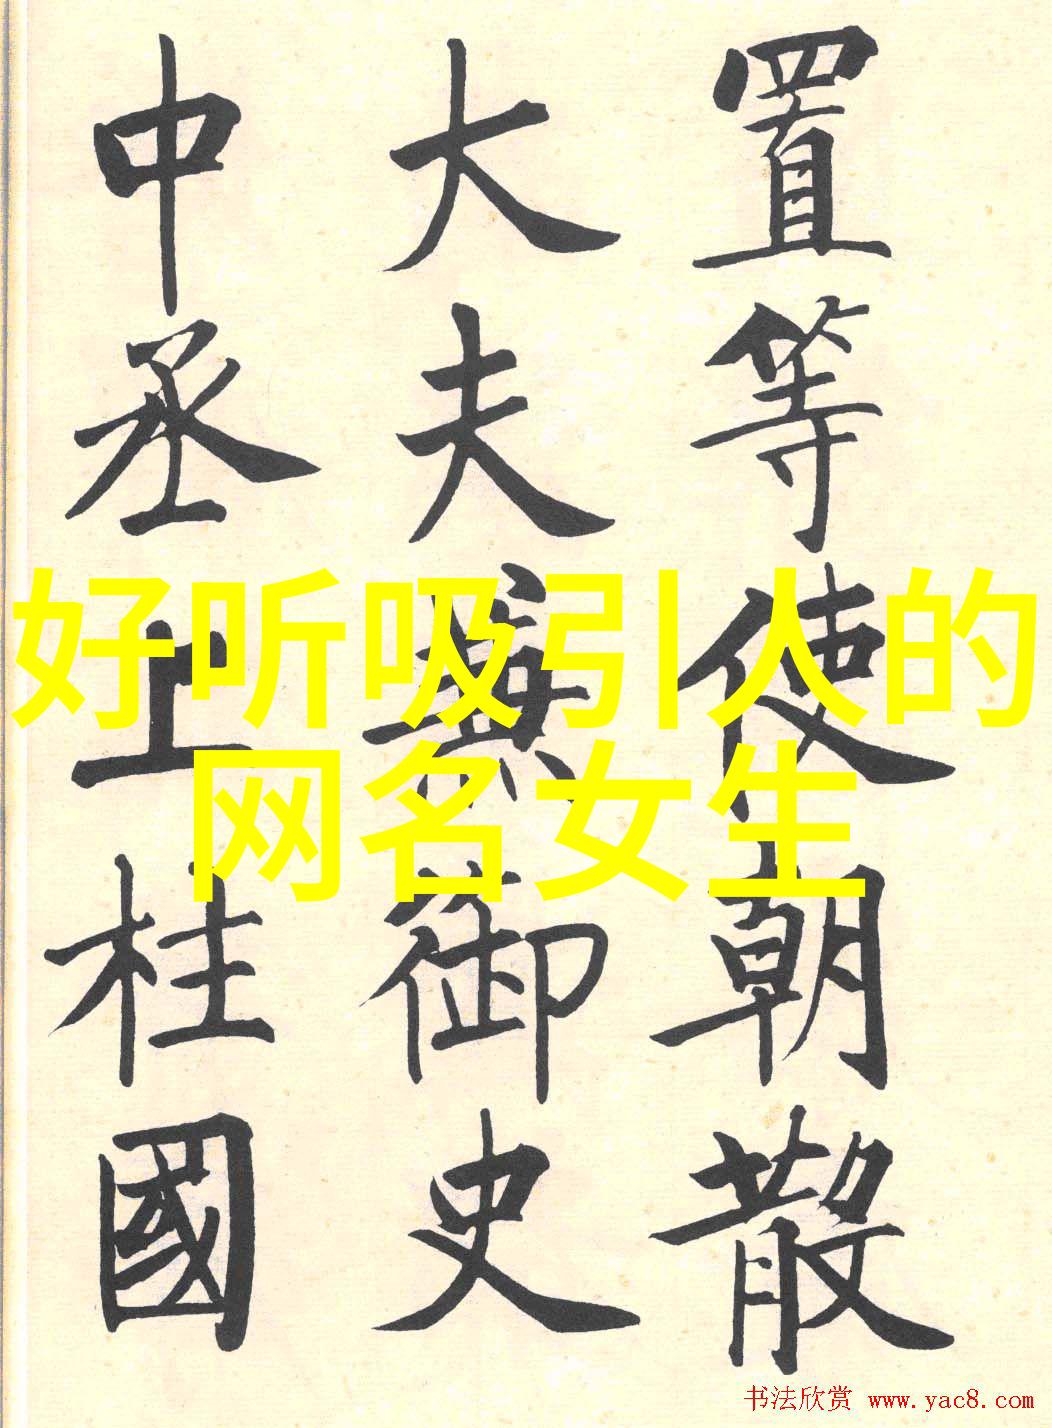 置等使朝散
大夫兼御史
中丞上柱國
好听吸引人的
网名女生
书法欣赏 www.yac8.com